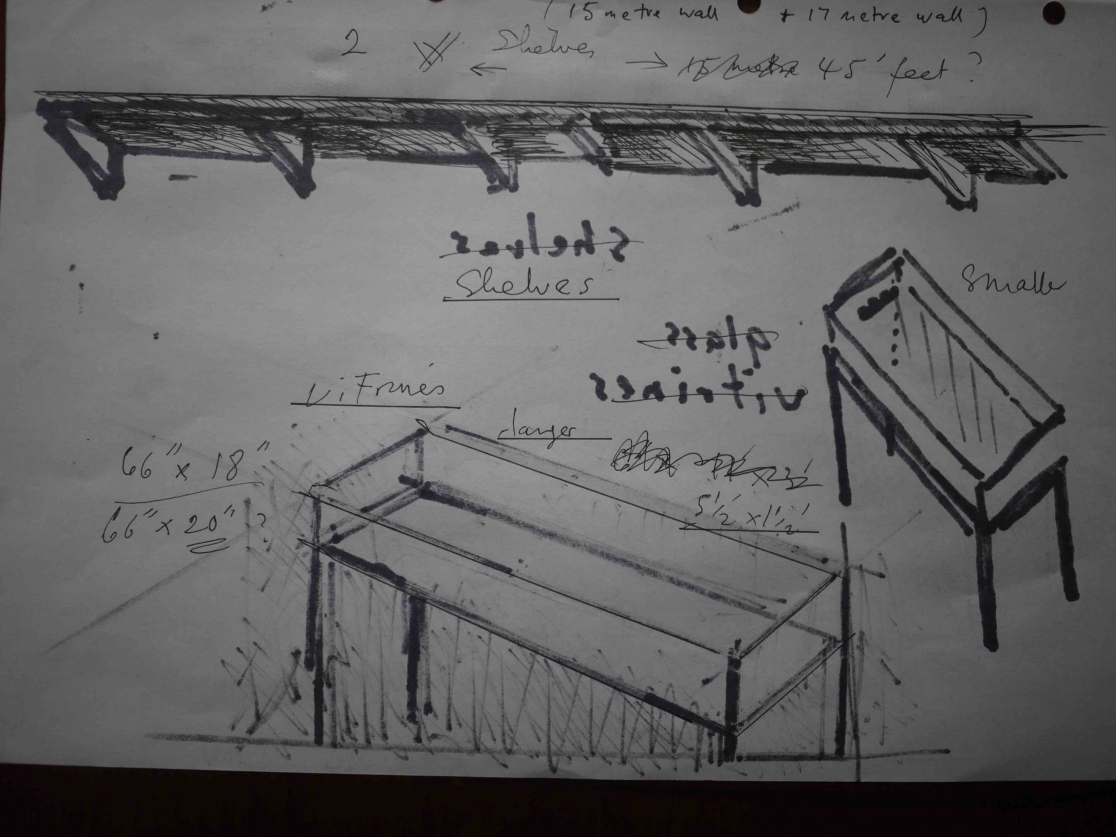 ( 15 metre wall + 17 metre wall )
2 Shelves
← → 45' feet ?
shelves
Shelves
Smaller
glass
vitrines
Vitrines
larger
66" x 18"
5½' x 1½'
66" x 20" ?